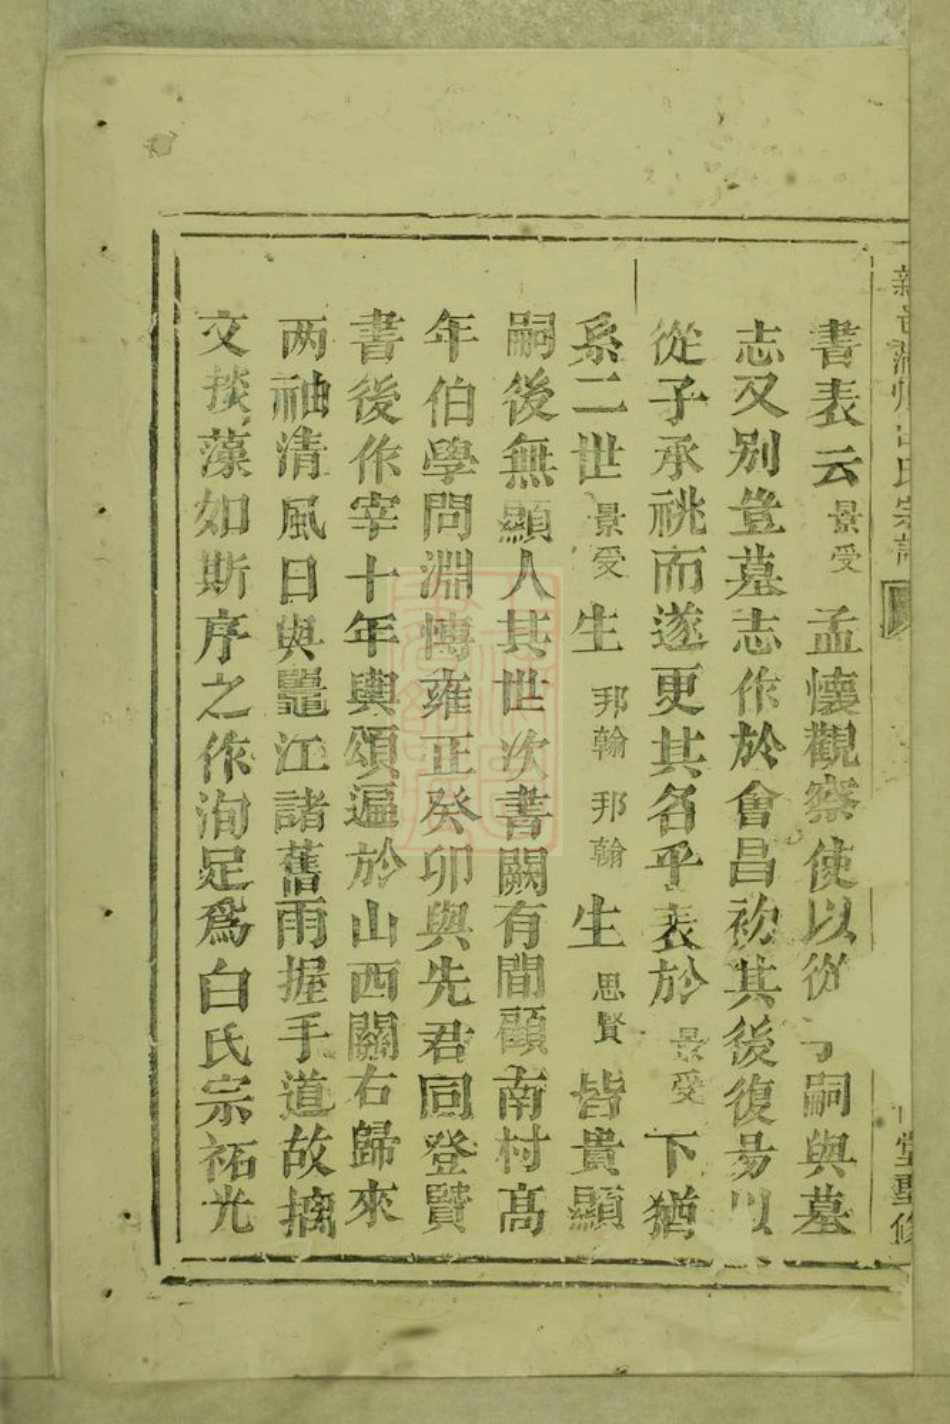 書表云景受孟懷觀察使以從子嗣與墓
志又别豈墓志作於會昌初其後復易以
從子承祧而遂更其名乎表於景受下猶
系二世景受生邦翰邦翰生思賢皆貴顯
嗣後無顯人其世次書闕有間顧南村髙
年伯學問淵愽雍正癸卯與先君同登賢
書後作宰十年輿頌遍於山西關右歸來
两袖清風日與鼍江諸舊雨握手道故摛
文掞藻如斯序之作洵足爲白氏宗祏光
氏宗譜
堂重修